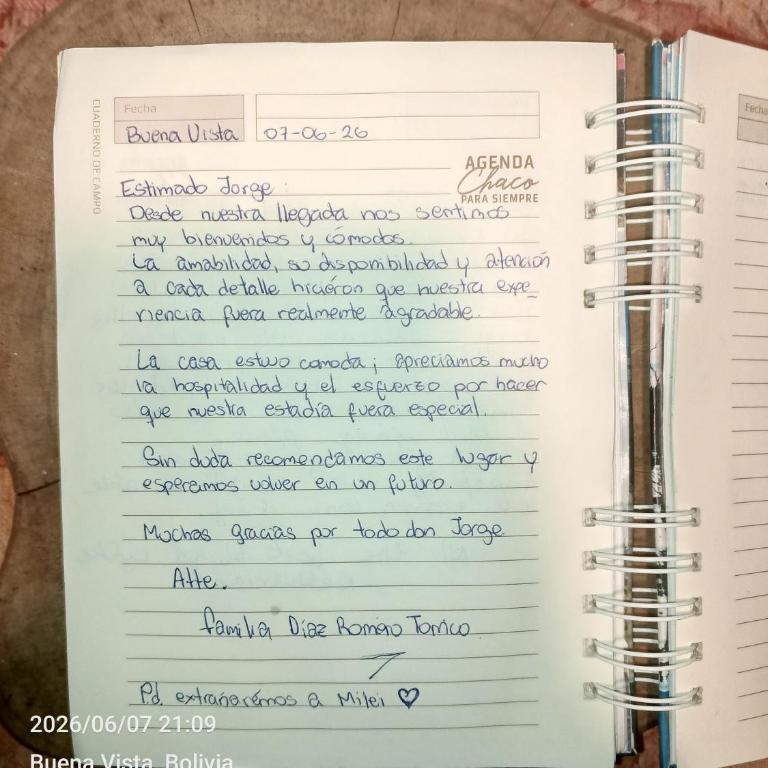 CUADERNO DE CAMPO
Fecha
Buena Vista
07-06-26
AGENDA
Chaco
PARA SIEMPRE
Estimado Jorge:
Desde nuestra llegada nos sentimos
muy bienvenidos y cómodos.
La amabilidad, su disponibilidad y atención
a cada detalle hicieron que nuestra expe_
riencia fuera realmente agradable.
La casa estuvo comoda; apreciamos mucho
la hospitalidad y el esfuerzo por hacer
que nuestra estadía fuera especial.
Sin duda recomendamos este lugar y
esperamos volver en un futuro.
Muchas gracias por todo don Jorge.
Atte.
familia Díaz Romero Torrico
Pd. extrañarémos a Milei ♡
Fecha
2026/06/07 21:09
Buena Vista, Bolivia